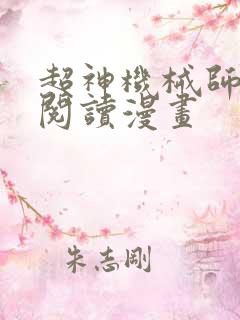 超神機械師
閱讀漫畫
朱志剛